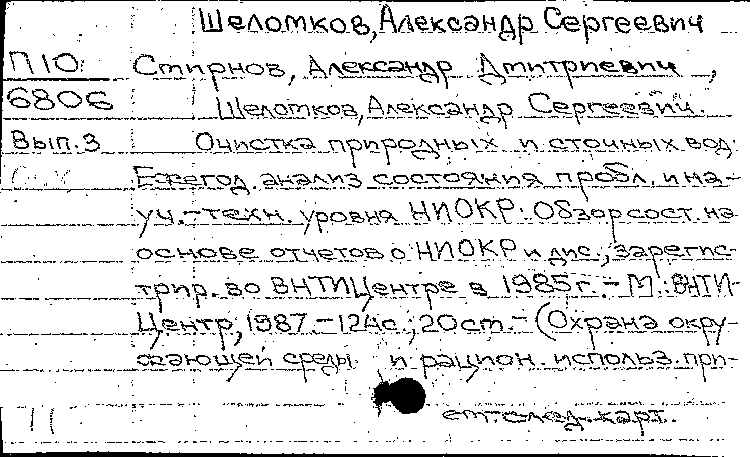 Шеломков, Александр Сергеевич
П10 Смирнов, Александр Дмитриевич,
6806 Шеломков, Александр Сергеевич.
Вып.3 Очистка природных и сточных вод:
Ежегод. анализ состояния пробл. и на-
уч.-техн. уровня НИОКР: Обзор сост. на
основе отчетов о НИОКР и дис., зарегис-
трир. во ВНТИЦентре в 1985г. - М.: ВНТИ-
Центр, 1987. - 124с.; 20см. - (Охрана окру-
жающей среды и рацион. использ. при-
см. след. карт.